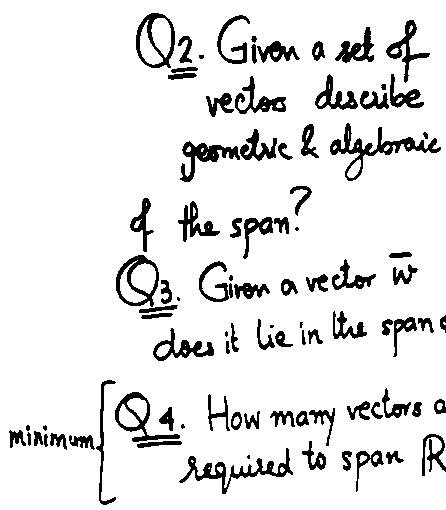 Q2. Given a set of
vectors describe
geometric & algebraic
of the span?
Q3. Given a vector w̄
does it lie in the span
minimum [ Q4. How many vectors a
required to span R